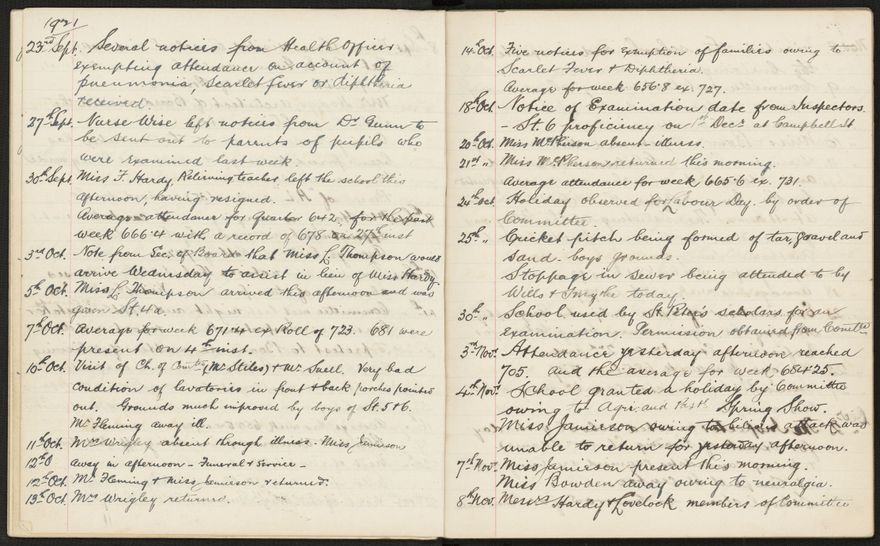 1921
23rd Sept. Several notices from Health Officer
exempting attendance on account of
pneumonia, scarlet fever or diphtheria
received.
27th Sept. Nurse Wise left notices from Dr Gunn to
be sent out to parents of pupils who
were examined last week.
30th Sept. Miss F. Hardy, Relieving teacher left the school this
afternoon, having resigned.
Average attendance for Quarter 642 for the past
week 666.4 with a record of 678 on 27th inst
3rd Oct. Note from Sec. of Board that Miss L. Thompson would
arrive Wednesday to assist in lieu of Miss Hardy.
5th Oct. Miss L. Thompson arrived this afternoon and was
given St. 4a.
7th Oct. Average for week 671.4 ex Roll of 723. 681 were
present on 4th inst.
10th Oct. Visit of Ch. of (Mr Stiles) & Mr Snell. Very bad
condition of lavatories in front & back porches pointed
out. Grounds much improved by boys of St. 5 & 6.
Mr Fleming away ill.
11th Oct. Mrs Wrigley absent through illness. Miss Jamieson
12th O away in afternoon - Funeral & service -
12th Oct. Mr Fleming & Miss Jamieson returned.
13th Oct. Mrs Wrigley returned.
14th Oct. Five notices for exemption of families owing to
Scarlet Fever & Diphtheria.
Average for week 656.8 ex. 727.
18th Oct Notice of Examination date from Inspectors.
- St. 6 proficiency on 1st Decr at Campbell St
20th Oct. Miss McPherson absent - illness.
21st " Miss McPherson returned this morning.
Average attendance for week 665.6 ex. 731.
24th Oct. Holiday observed for Labour Day. by order of
Committee
25th " Cricket pitch being formed of tar, gravel and
sand. boys grounds.
Stoppage in sewer being attended to by
Wills & Smythe today.
30th " School used by St. Peter's scholars for an
examination. Permission obtained from Comttee
3rd Nov. Attendance yesterday afternoon reached
705. and the average for week 684.25.
4th Nov. School granted a holiday by Committee
owing to Agri. and Past. Spring Show.
Miss Jamieson owing to attack was
unable to return for yesterday afternoon.
7th Nov. Miss Jamieson present this morning.
Miss Bowden away owing to neuralgia.
8th Nov. Messrs Hardy & Lovelock members of Committee